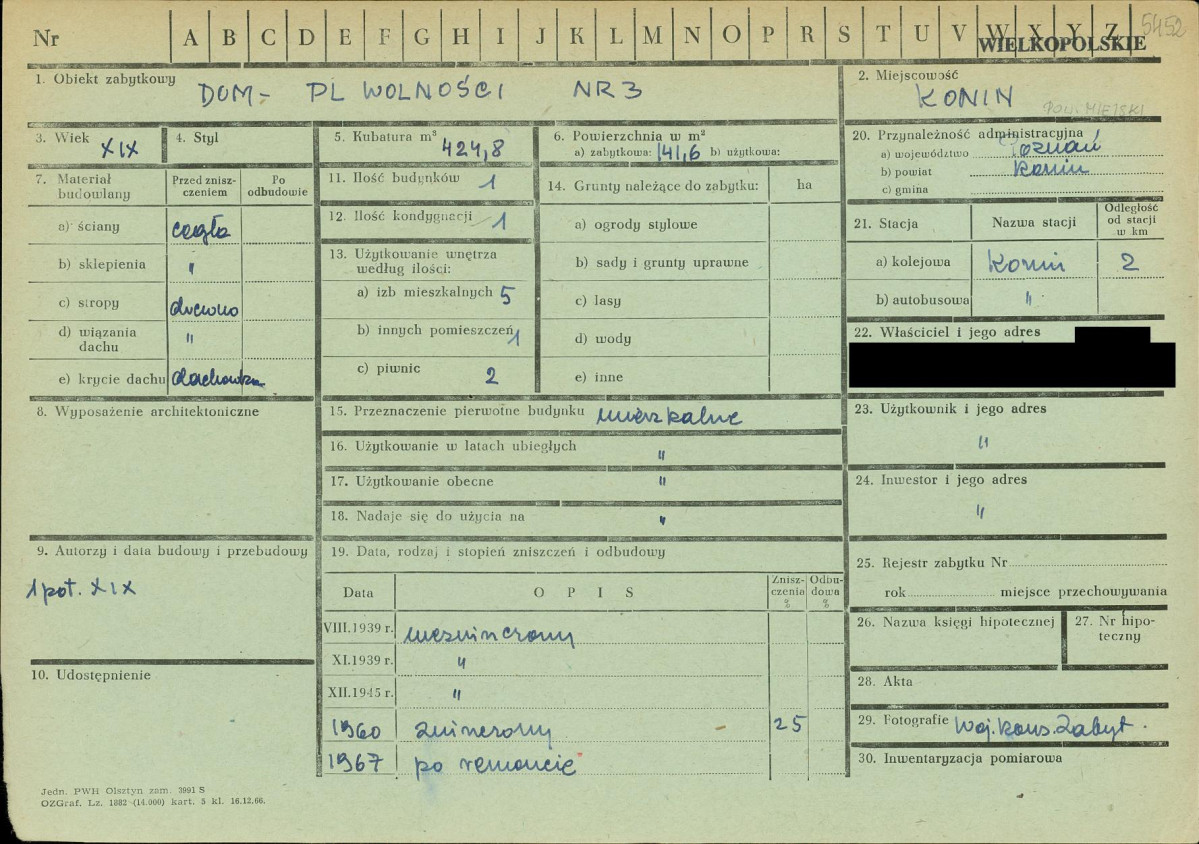 Nr A B C D E F G H I J K L M N O P R S T U V W X Y Z
WIELKOPOLSKIE
5452
1. Obiekt zabytkowy
DOM – PL WOLNOŚCI NR 3
2. Miejscowość
KONIN
POW. MIEJSKI
3. Wiek XIX
4. Styl
5. Kubatura m³ 424,8
6. Powierzchnia w m²
a) zabytkowa: 141,6 b) użytkowa:
7. Materiał budowlany
Przed zniszczeniem
Po odbudowie
a) ściany cegła
b) sklepienia "
c) stropy drewno
d) wiązania dachu "
e) krycie dachu dachówka
8. Wyposażenie architektoniczne
9. Autorzy i data budowy i przebudowy
1 poł. XIX
10. Udostępnienie
11. Ilość budynków 1
12. Ilość kondygnacji 1
13. Użytkowanie wnętrza według ilości:
a) izb mieszkalnych 5
b) innych pomieszczeń 1
c) piwnic 2
14. Grunty należące do zabytku: ha
a) ogrody stylowe
b) sady i grunty uprawne
c) lasy
d) wody
e) inne
15. Przeznaczenie pierwotne budynku mieszkalne
16. Użytkowanie w latach ubiegłych "
17. Użytkowanie obecne "
18. Nadaje się do użycia na "
19. Data, rodzaj i stopień zniszczeń i odbudowy
Data O P I S Zniszczenia % Odbudowa %
VIII.1939 r. niezniszczony
XI.1939 r. "
XII.1945 r. "
1960 zniszczony 25
1967 po remoncie
20. Przynależność administracyjna
a) województwo Poznań
b) powiat Konin
c) gmina
21. Stacja Nazwa stacji Odległość od stacji w km
a) kolejowa Konin 2
b) autobusowa "
22. Właściciel i jego adres
23. Użytkownik i jego adres
"
24. Inwestor i jego adres
"
25. Rejestr zabytku Nr
rok miejsce przechowywania
26. Nazwa księgi hipotecznej
27. Nr hipoteczny
28. Akta
29. Fotografie Woj. Kons. Zabyt.
30. Inwentaryzacja pomiarowa
Jedn. PWH Olsztyn zam. 3991 S
OZGraf. Lz. 1882 (14.000) kart. 5 kl. 16.12.66.